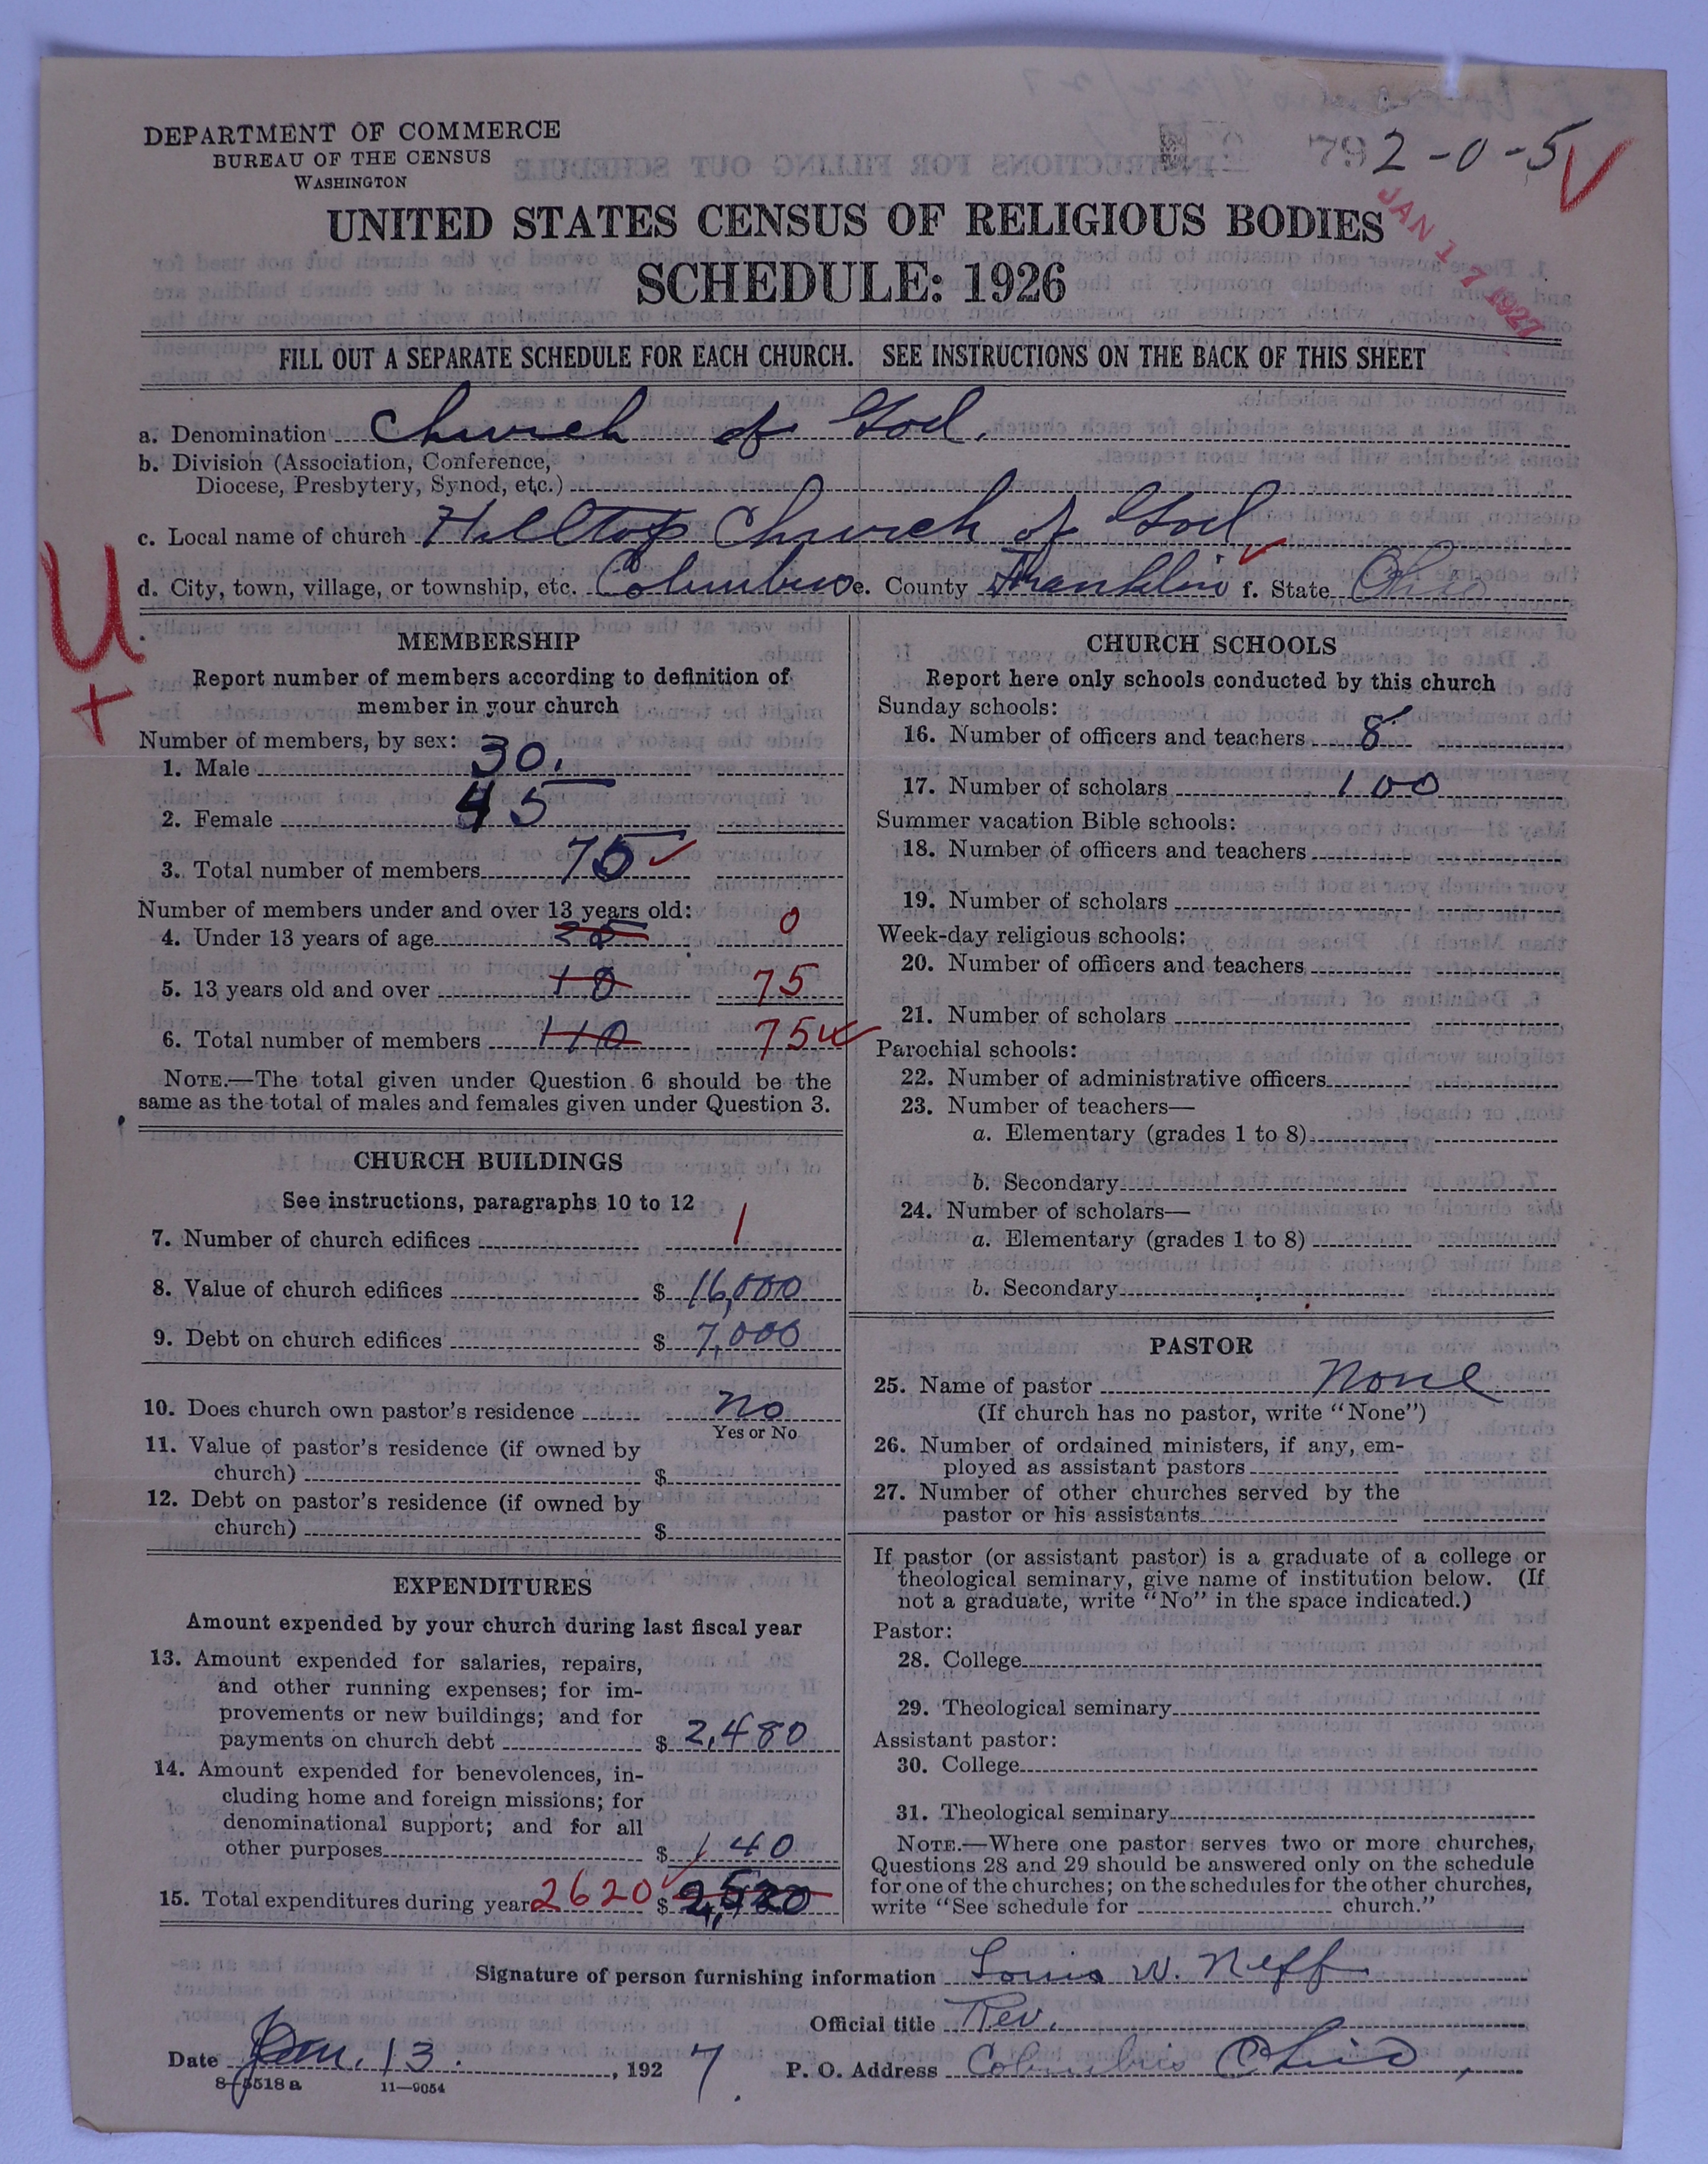 DEPARTMENT OF COMMERCE
BUREAU OF THE CENSUS
WASHINGTON
792-0-5
JAN 17 1927
UNITED STATES CENSUS OF RELIGIOUS BODIES
SCHEDULE: 1926
FILL OUT A SEPARATE SCHEDULE FOR EACH CHURCH. SEE INSTRUCTIONS ON THE BACK OF THIS SHEET
a. Denomination Church of God.
b. Division (Association, Conference,
Diocese, Presbytery, Synod, etc.)
c. Local name of church Hilltop Church of God
d. City, town, village, or township, etc. Columbus e. County Franklin f. State Ohio
U
+
MEMBERSHIP
Report number of members according to definition of
member in your church
Number of members, by sex:
1. Male 30.
2. Female 45
3. Total number of members 75
Number of members under and over 13 years old:
4. Under 13 years of age 0
5. 13 years old and over 10 75
6. Total number of members 110 75
NOTE.—The total given under Question 6 should be the
same as the total of males and females given under Question 3.
CHURCH BUILDINGS
See instructions, paragraphs 10 to 12
7. Number of church edifices 1
8. Value of church edifices $ 16,000
9. Debt on church edifices $ 7,000
10. Does church own pastor's residence no
Yes or No
11. Value of pastor's residence (if owned by
church) $
12. Debt on pastor's residence (if owned by
church) $
EXPENDITURES
Amount expended by your church during last fiscal year
13. Amount expended for salaries, repairs,
and other running expenses; for im-
provements or new buildings; and for
payments on church debt $ 2,480
14. Amount expended for benevolences, in-
cluding home and foreign missions; for
denominational support; and for all
other purposes $ 140
15. Total expenditures during year 2620 $
CHURCH SCHOOLS
Report here only schools conducted by this church
Sunday schools:
16. Number of officers and teachers 8
17. Number of scholars 100
Summer vacation Bible schools:
18. Number of officers and teachers
19. Number of scholars
Week-day religious schools:
20. Number of officers and teachers
21. Number of scholars
Parochial schools:
22. Number of administrative officers
23. Number of teachers—
a. Elementary (grades 1 to 8)
b. Secondary
24. Number of scholars—
a. Elementary (grades 1 to 8)
b. Secondary
PASTOR
25. Name of pastor None
(If church has no pastor, write "None")
26. Number of ordained ministers, if any, em-
ployed as assistant pastors
27. Number of other churches served by the
pastor or his assistants
If pastor (or assistant pastor) is a graduate of a college or
theological seminary, give name of institution below. (If
not a graduate, write "No" in the space indicated.)
Pastor:
28. College
29. Theological seminary
Assistant pastor:
30. College
31. Theological seminary
NOTE.—Where one pastor serves two or more churches,
Questions 28 and 29 should be answered only on the schedule
for one of the churches; on the schedules for the other churches,
write "See schedule for church."
Signature of person furnishing information Louis W. Neff
Official title Rev.
Date Jan. 13. , 1927 P. O. Address Columbus Ohio,
8-5518a 11-9054